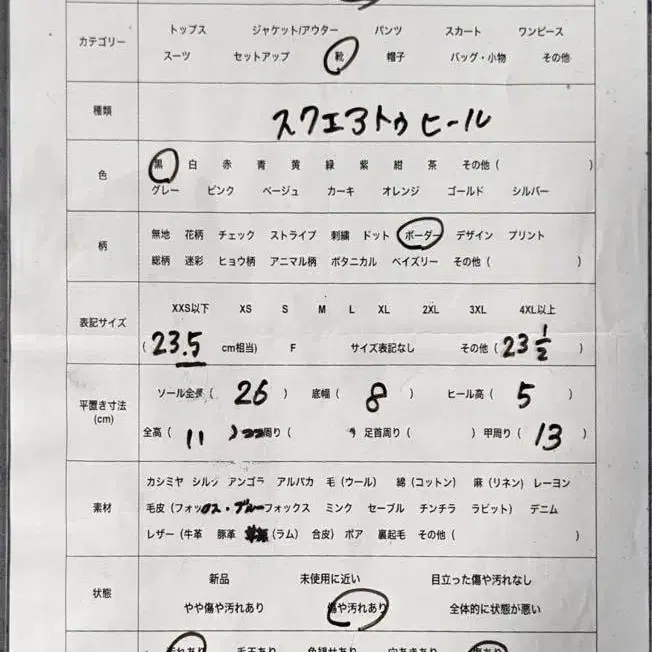 カテゴリー
トップス ジャケット/アウター パンツ スカート ワンピース
スーツ セットアップ 靴 帽子 バッグ・小物 その他
種類
スクエアトゥヒール
色
黒 白 赤 青 黄 緑 紫 紺 茶 その他( )
グレー ピンク ベージュ カーキ オレンジ ゴールド シルバー
柄
無地 花柄 チェック ストライプ 刺繍 ドット ボーダー デザイン プリント
総柄 迷彩 ヒョウ柄 アニマル柄 ボタニカル ペイズリー その他( )
表記サイズ
XXS以下 XS S M L XL 2XL 3XL 4XL以上
(23.5 cm相当) F サイズ表記なし その他(23 1/2)
平置き寸法
(cm)
ソール全長(26) 底幅(8) ヒール高(5)
全高(11) 周り( ) 足首周り( ) 甲周り(13)
素材
カシミヤ シルク アンゴラ アルパカ 毛(ウール) 綿(コットン) 麻(リネン) レーヨン
毛皮(フォックス・ブルーフォックス ミンク セーブル チンチラ ラビット) デニム
レザー(牛革 豚革 (ラム) 合皮) ボア 裏起毛 その他( )
状態
新品 未使用に近い 目立った傷や汚れなし
やや傷や汚れあり 傷や汚れあり 全体的に状態が悪い
汚れあり 毛玉あり 色褪せあり 穴あきあり 傷あり